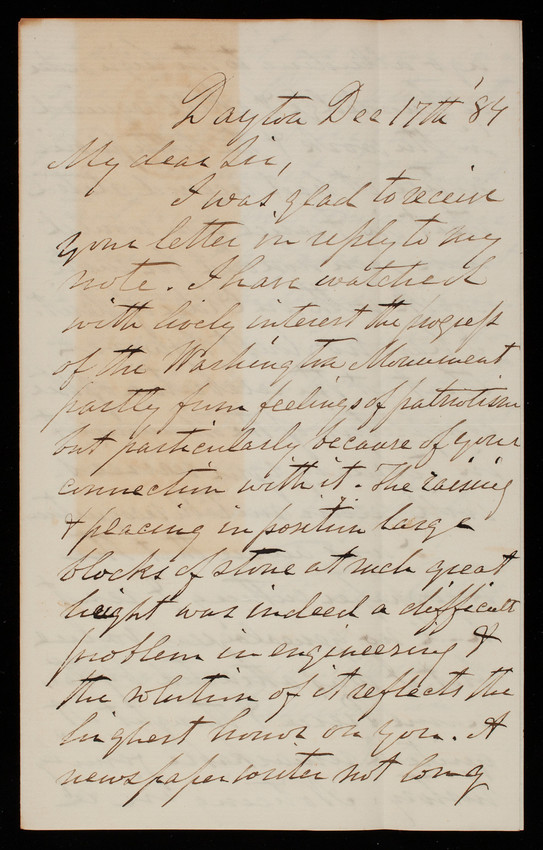 Dayton Dec 17th '84
My dear Sir,
I was glad to receive
your letter in reply to my
note. I have watched
with lively interest the progress
of the Washington Monument
partly from feelings of patriotism
but particularly because of your
connection with it. The raising
& placing in position large
blocks of stone at such great
height was indeed a difficult
problem in engineering &
the solution of it reflects the
highest honor on you. A
newspaper writer not long